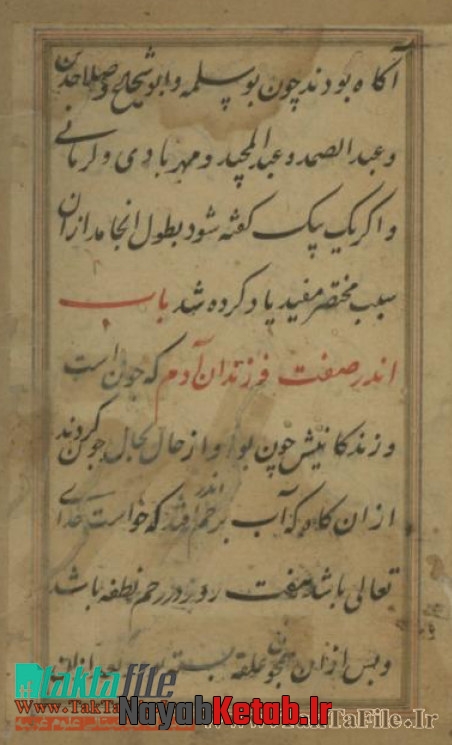 آکاه بودند چون بو سلمه و ابو شجاع و
و عبد الصمد و عبد المجید و مهربادی و کرمانی
و اکر یک بیک کفته شود بطول انجامد از ان
سبب مختصر مفید یاد کرده شد باب
اندر صفت فرزندان آدم که چون است
و زندکانیش چون بود و از حال بحال چون کردند
از ان کاه که آب اندر رحم افتد که خواست خدای
تعالی باشد هفت روز در رحم نطفه باشد
و بس از ان همچون علقه بسته
taktafile
www.TakTaFile.Ir
NayabKetab.Ir